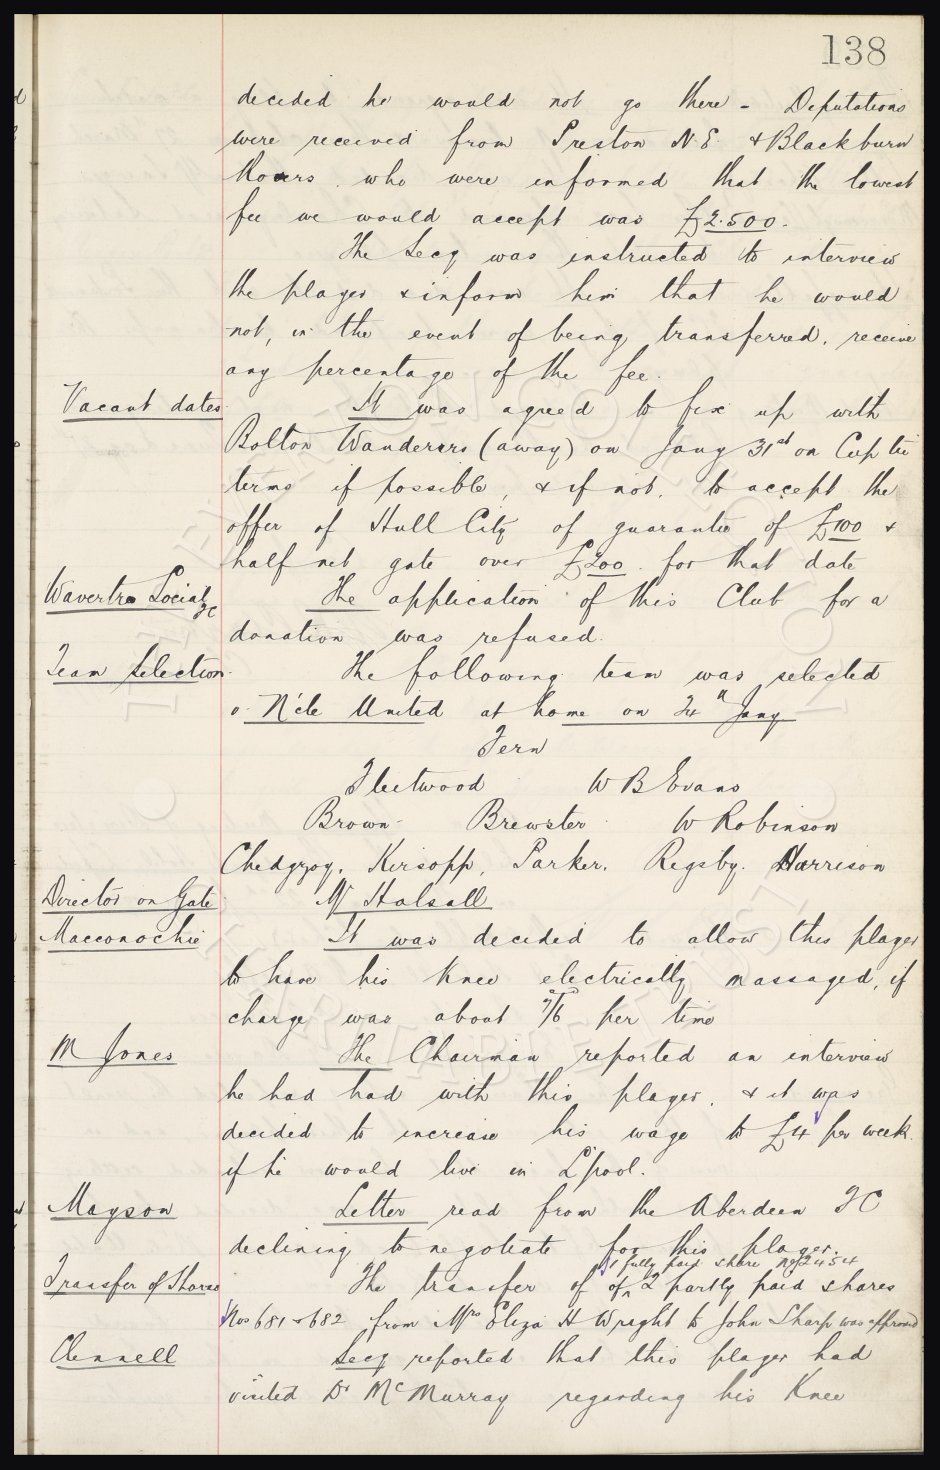 138
decided he would not go there - Deputations
were received from Preston N.E. & Blackburn
Rovers. who were informed that the lowest
fee we would accept was £2.500.
The Secy was instructed to interview
the player & inform him that he would
not, in the event of being transferred, receive
any percentage of the fee.
Vacant dates. It was agreed to fix up with
Bolton Wanderers (away) on Jany 31st on Cup tie
terms if possible, & if not, to accept the
offer of Hull City of guarantee of £100 &
half net gate over £200. for that date
Wavertree Social FC The application of this Club for a
donation was refused.
Team Selection. The following team was selected
v. N'cle United at home on 24th Jany
Fern
Fleetwood W B Evans
Brown. Brewster. W Robinson
Chedgzoy, Kirsopp, Parker, Rigsby. Harrison
Director on Gate Mr Halsall
Macconachie It was decided to allow this player
to have his knee electrically massaged, if
charge was about 7/6 per time
M Jones The Chairman reported an interview
he had had with this player, & it was
decided to increase his wage to £4 per week.
if he would live in L'pool.
Mayson Letter read from the Aberdeen FC
declining to negotiate for this player.
1 fully paid share No 2454
Transfer of Shares The transfer of of 2 partly paid shares
Nos 681 & 682 from Mrs Eliza H Wright to John Sharp was approved
Clennell Secy reported that this player had
visited Dr McMurray regarding his Knee